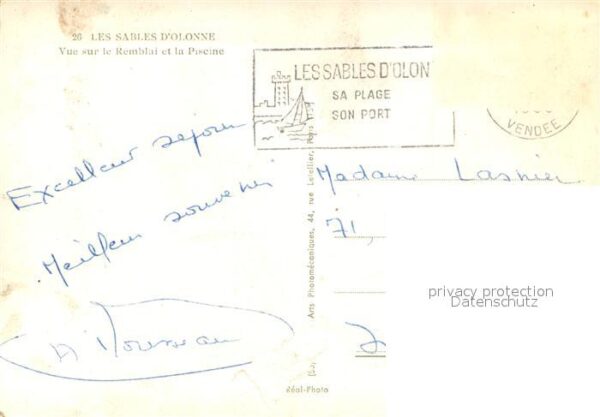 26 LES SABLES D'OLONNE
Vue sur le Remblai et la Piscine
LES SABLES D'OLON
SA PLAGE
SON PORT
VENDEE
Excellent séjour
Meilleur souvenir
Madame Lasnier
71
Arts Photomécaniques, 44, rue Letellier, Paris
Réal-Photo
privacy protection
Datenschutz